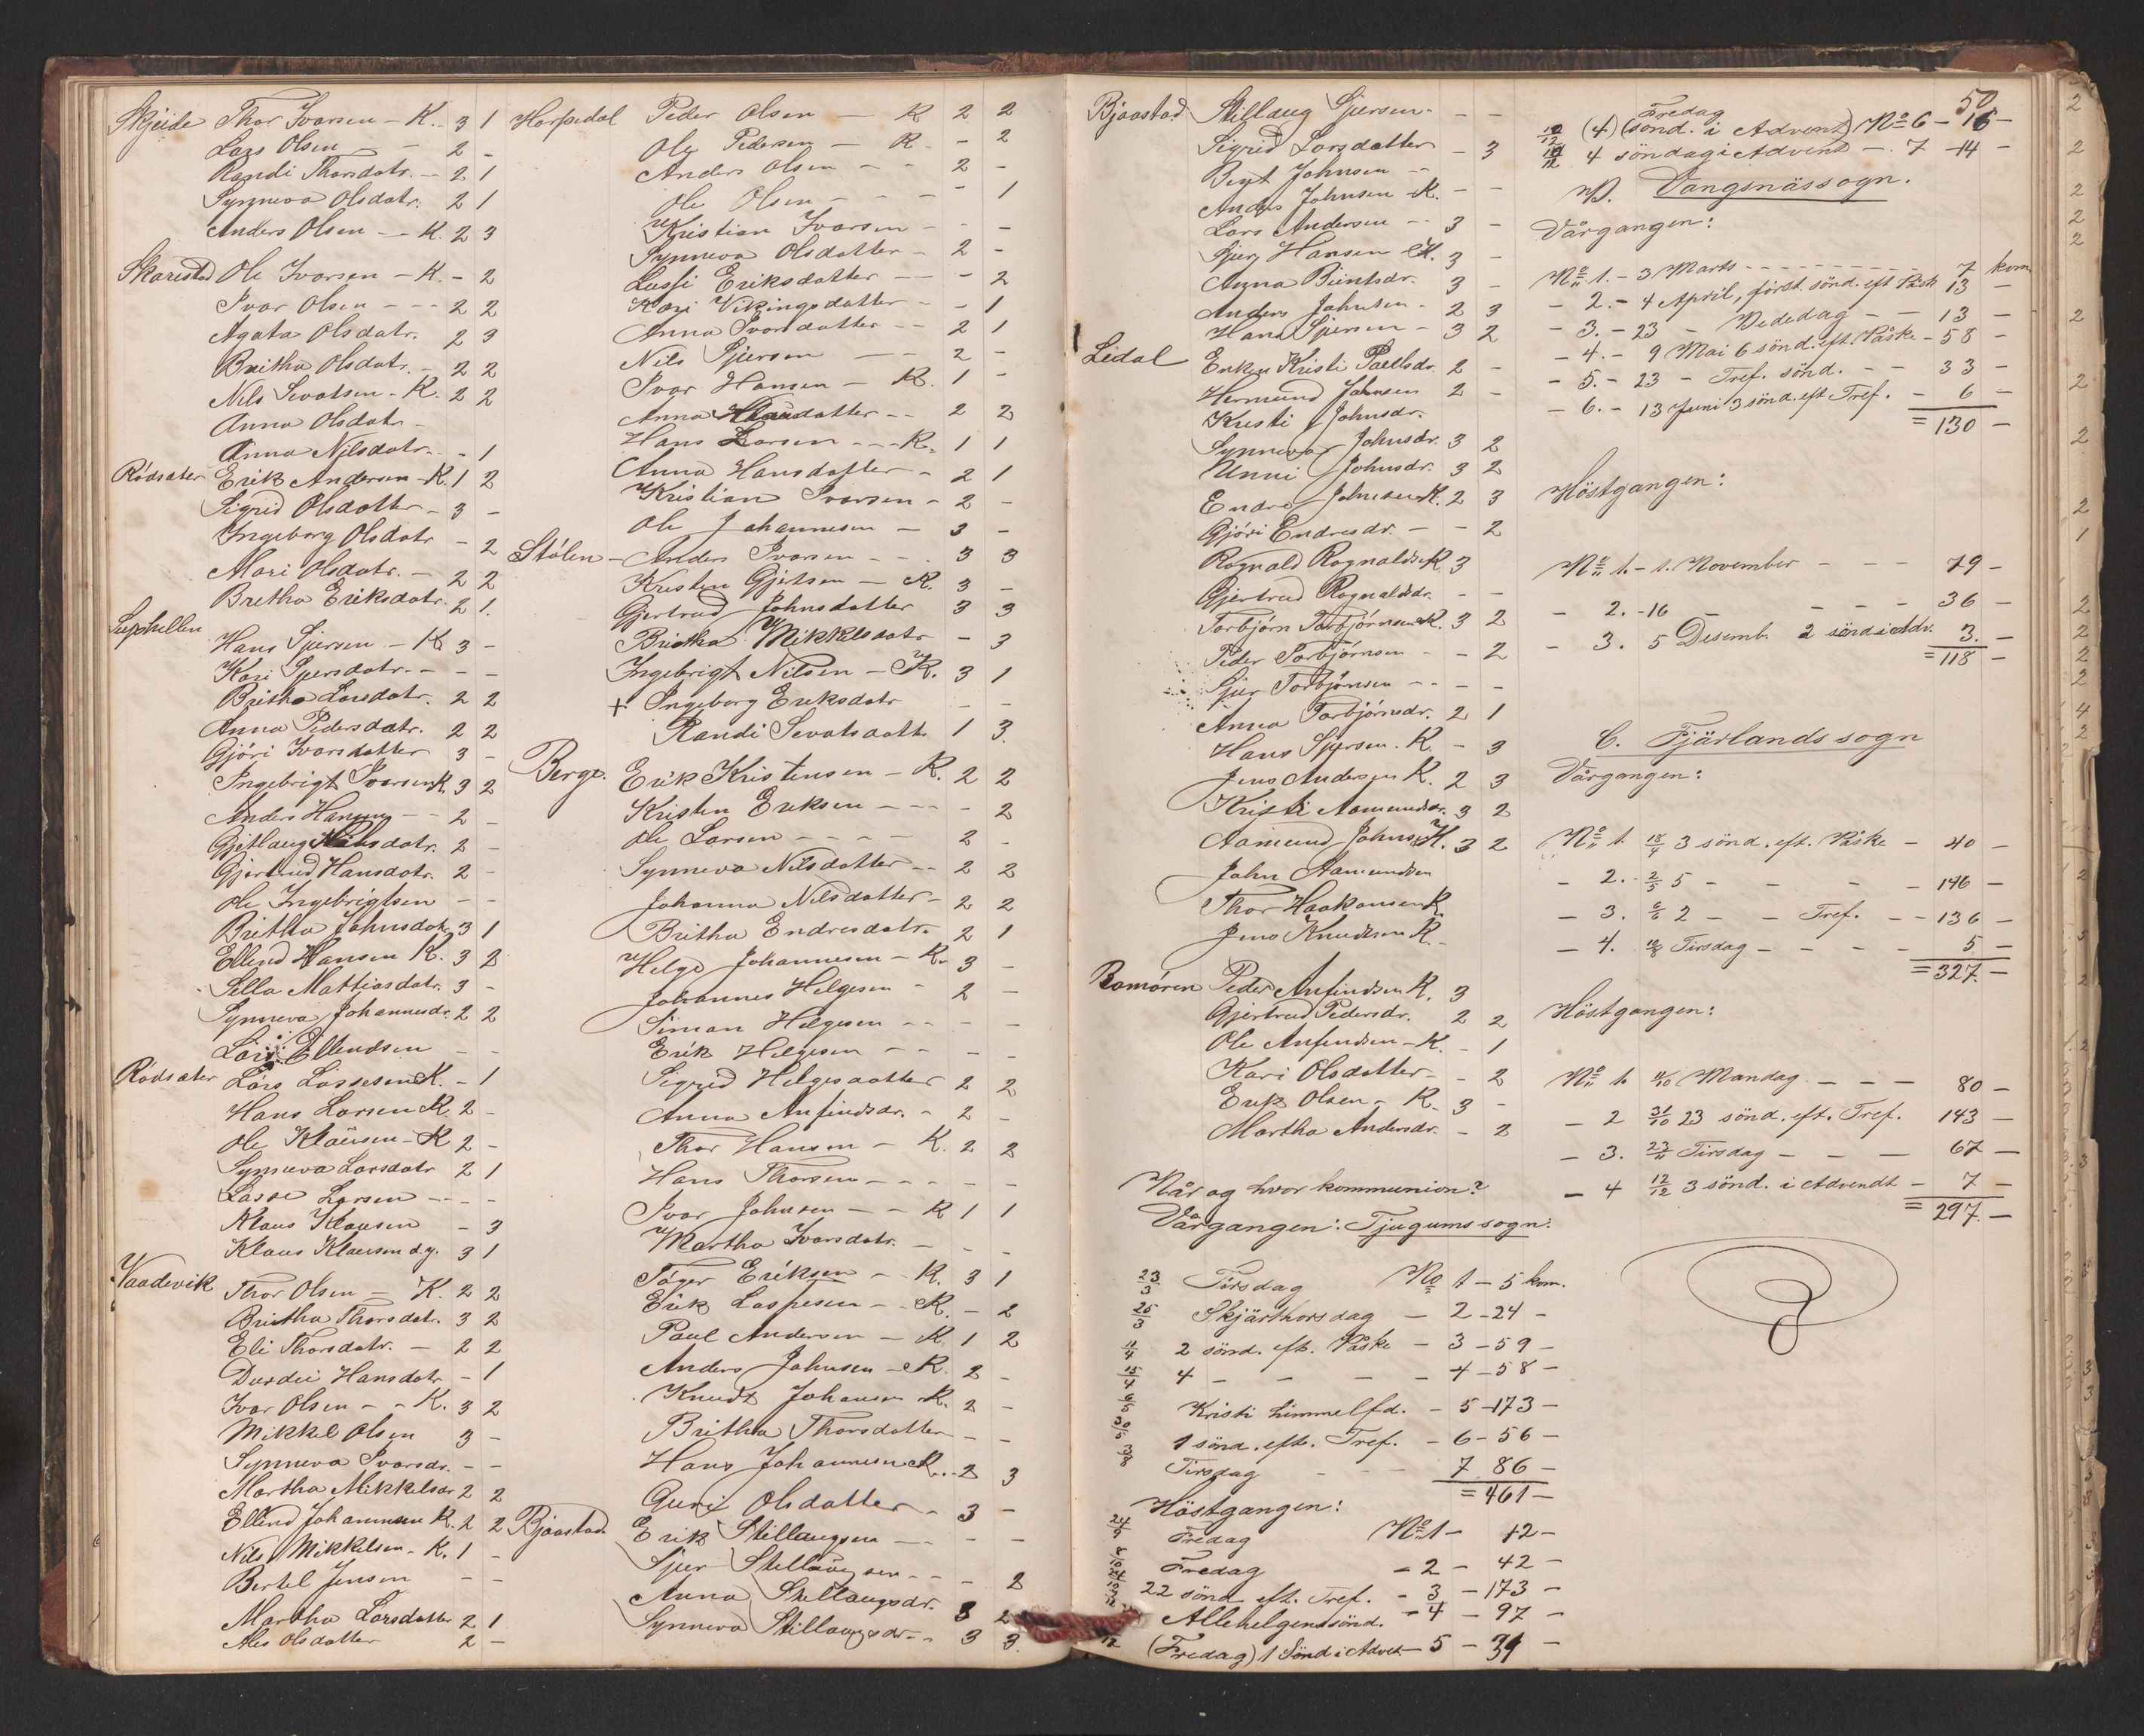 Skjeide Thor Ivarsen – K. 3 1
Lars Olsen – 2 –
Randi Thorsdatr. – 2 1
Synneva Olsdatr. 2 1
Anders Olsen – K. 2 3
Skarestad Ole Ivarsen – K. – 2
Ivar Olsen – – – 2 2
Agata Olsdatr. 2 3
Britha Olsdatr. – 2 2
Nils Sevatsen – K. 2 2
Anna Olsdatr –
Anna Nilsdatr. – 1
Rödsæter Erik Andersen – K. 1 2
Sigrid Olsdatter – 3 –
Ingeborg Olsdatr – 2
Mari Olsdatr. – 2 2
Bretha Eriksdatr. 2 1.
Suphellen
Hans Sjursen – K 3 –
Kari Sjursdatr. – – –
Britha Larsdatr. 2 2
Anna Pedersdatr. 2 2
Gjöri Ivarsdatter 3 –
Ingebrigt Ivarsen K. 3 2
Anders Hansen – – 2 –
Gjetlaug Nilsdatr. 2 –
Gjertrud Hansdatr. 2 –
Ole Ingebrigtsen – –
Britha Johnsdatr. 3 1
Ellend Hansen K. 3 2
Sella Mattiasdatr. 3 –
Synneva Johannesdr. 2 2
Lars Ellendsen – –
Rödsæter Lars Lassesen K. – 1
Hans Larsen K. 2 –
Ole Klausen – K 2 –
Synneva Larsdatr 2 1
Lasse Larsen – – – –
Klaus Klausen – 3
Klaus Klausen d.y. 3 1
Vaadevik Thor Olsen – K. 2 2
Britha Thorsdatr. 3 2
Eli Thorsdatr. – 2 2
Durdei Hansdatr – 1
Ivar Olsen – – K. 3 2
Mikkel Olsen 3 –
Synneva Ivarsdr. – –
Martha Mikkelsdr 2 2
Ellend Johannesen K. 2 2
Nils Mikkelsen – K. 1 –
Bertel Jensen – –
Martha Larsdatter 2 1
Ales Olsdatter 2 –
Horpedal Peder Olsen – K 2 2
Ole Pedersen – K – 2
Anders Olsen – – 2 –
Ole Olsen – – – 1
Kristian Ivarsen – – –
Synneva Olsdatter – 2 –
Lussi Eriksdatter – – – 2
Kari Vikingsdatter – – 1
Anna Ivarsdatter – – 2 1
Nils Sjursen – – 2 –
Ivar Hansen – K. 1 –
Anna Hansdatter – – 2 2
Hans Larsen – – – K. 1 1
Anna Hansdatter – 2 1
Kristian Ivarsen – 2 –
Ole Johannesen – 3 –
Stölen – Anders Ivarsen – – 3 3
Kristen Gjertsen – K. 3 –
Gjertrud Johnsdatter 3 3
Britha Mikkelsdatr – 3
Ingebrigt Nilsen – K. 3 1
+ Ingeborg Eriksdatr – –
Randi Sevatsdatt 1 3.
Berge. Erik Kristensen – K. 2 2
Kristen Eriksen – – – – 2
Ole Larsen – – – – 2 –
Synneva Nilsdatter – – 2 2
Johanna Nilsdatter – 2 2
Britha Endresdatr. 2 1
Helge Johannesen – K. 3 –
Johannes Helgesen – 2 –
Simon Helgesen – – – –
Erik Helgesen – – – –
Sigrid Helgesdatter 2 2
Anna Anfindsdr. – 2 –
Thor Hansen – K. 2 2
Hans Thorsen – – – – –
Ivar Johnsen – – K 1 1
Martha Ivarsdatr. – – –
Töger Eriksen – K. 3 1
Erik Laspesen – – K. – 2
Paul Andersen – K. 1 2
Anders Johnsen – K. 2 –
Knudt Johansen K. 2 –
Britha Thorsdatter – –
Hans Johannesen K. – 2 3
Guri Olsdatter – 3 –
Bjaastad Erik Stillaugsen – – – –
Sjur Stillaugsen – – – 2
Anna Stillaugsdr. 3 2
Synneva Stillaugsdr. – 3 3.
Bjaastad Stillaug Sjursen – – –
Sigrid Larsdatter – 3
Beyt Johnsen – –
Anders Johnsen – K. – –
Lars Andersen – – 3 –
Sjur Hansen K. 3 –
Anna Bientsdr. 3 –
Anders Johnsen – 2 3
Hans Sjursen – 3 2
Lidal Enken Kristi Paulsdr. 2 –
Hermund Johnsen 2 –
Kristi Johnsdr.
Synneva Johnsdr. 3 2
Unni Johnsdr. 3 2
Endre Johnsen K. 2 3
Gjöri Endresdr. – – 2
Rognald Rognaldsen K. 3
Gjertrud Rognaldsdr. – –
Torbjörn Torbjörnsen K. 3 2
Peder Torbjörnsen – – 2
Sjur Torbjörnsen – – – –
Anna Torbjörnsdr. 2 1
Hans Sjursen. K. – 3
Jens Andersen K. 2 3
Kristi Aamundsdr. 3 2
Aamund Johnsen K. 3 2
John Aamundsen
Thor Haakonsen K.
Jens Knudsen K. –
Romören Peder Anfindsen K. 3
Gjertrud Pedersdr. 2 2
Ole Anfindsen – K. – 1
Kari Olsdatter – – 2
Erik Olsen – K. 3 –
Martha Andersdr. – 2
Når og hvor kommunion?
Vårgangen: Tjugums sogn.
23/3 Tirsdag No 1 – 5 kom.
25/3 Skjärthorsdag – 2 – 24 –
11/4 2 sönd. eft. Påske – 3 – 59 –
4 – – – – 4 – 58 –
6/5 Kristi himmelfd. – 5 – 173 –
30/5 1 sönd. eft. Tref. – 6 – 56 –
3/8 Tirsdag – – – 7 86 –
= 461 –
Höstgangen:
24/9 Fredag No 1 – 12 –
Fredag – 2 – 42 –
22 sönd. eft. Tref. – 3 – 173 –
Allehelgensönd. – 4 – 97 –
(Fredag) 1 Sönd i Advet – 5 – 31 –
50
Fredag
(4) (sönd. i Advent) No 6 – 16 –
4 söndag i Advend – – 7 – 14 –
B. Vangsnässogn.
Vårgangen:
No 1. – 3 Marts – – – – – 7 kom.
– 2. – 4 April, först. sönd. eft Påsk 13 –
– 3. – 23 – Bededag – – 13 –
– 4. – 9 Mai 6 sönd. eft. Påske – 58 –
– 5. – 23 – Tref. sönd. – – 33 –
– 6. – 13 Juni 3 sönd. eft Tref. – 6 –
= 130 –
Höstgangen:
No 1. – 1. November – – – 79 –
– 2. – 16 – – – – 36 –
– 3. 5 Desemb. 2 sönd i Adv. 3. –
= 118 –
C. Fjärlands sogn
Vårgangen:
No 1. 18/4 3 sönd. eft. Påske – 40 –
– 2. – 2/5 5 – – – – 146 –
– 3. 6/6 2 – – Tref. – – 136 –
– 4. Tirsdag – – – – 5 –
= 327. –
Höstgangen:
No 1. Mandag. – – – 80 –
– 2 31/10 23 sönd. eft. Tref. 143 –
– 3. 23/11 Tirsdag – – – 67 –
– 4 12/12 3 sönd. i Advendt – 7 –
= 297. –